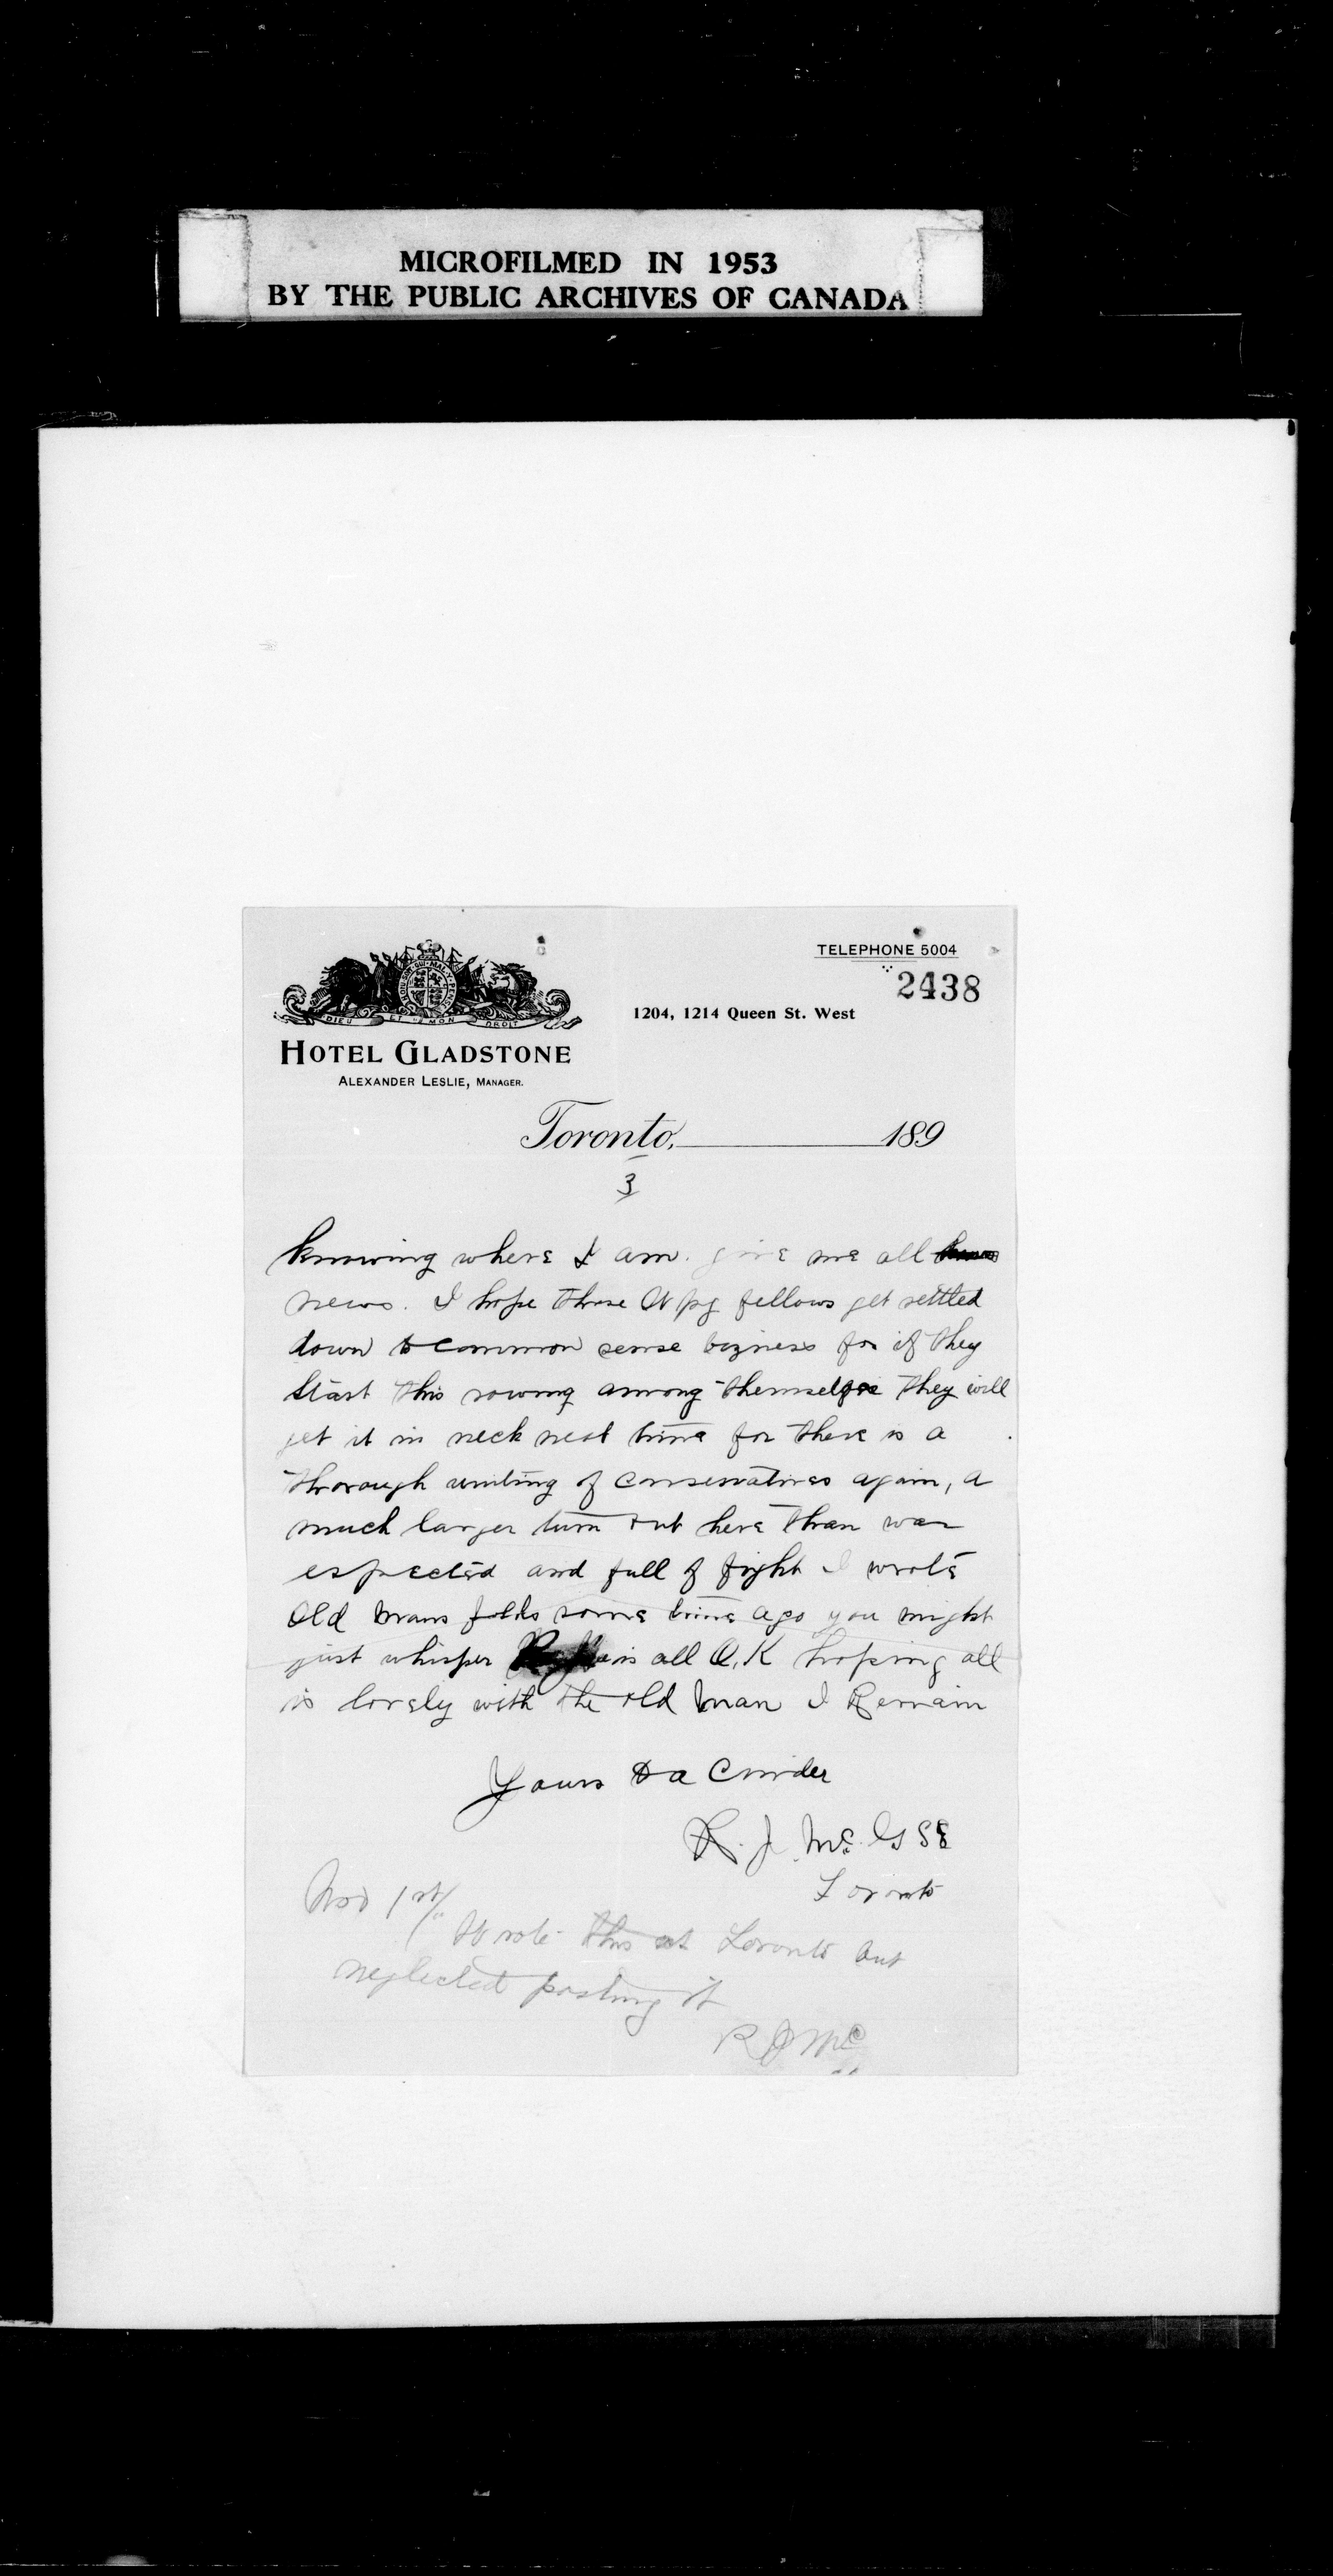 MICROFILMED IN 1953
BY THE PUBLIC ARCHIVES OF CANADA
TELEPHONE 5004
2438
1204, 1214 Queen St. West
DIEU ET MON DROIT
HOTEL GLADSTONE
ALEXANDER LESLIE, MANAGER.
Toronto, 189
3
knowing where I am. give me all
news. I hope those Wpg fellows get settled
down to common sense bizness for if they
start this rowing among themselves they will
get it in neck next time for there is a
thorough uniting of conservatives again, a
much larger turn out here than was
expected and full of fight I wrote
Old Mans folks some time ago you might
just whisper is all O.K hoping all
is lovely with the old man I Remain
Yours to a Cinder
R. J. McGee
Toronto
Nov 1st/
Wrote this at Toronto but
neglected posting it
R J Mc